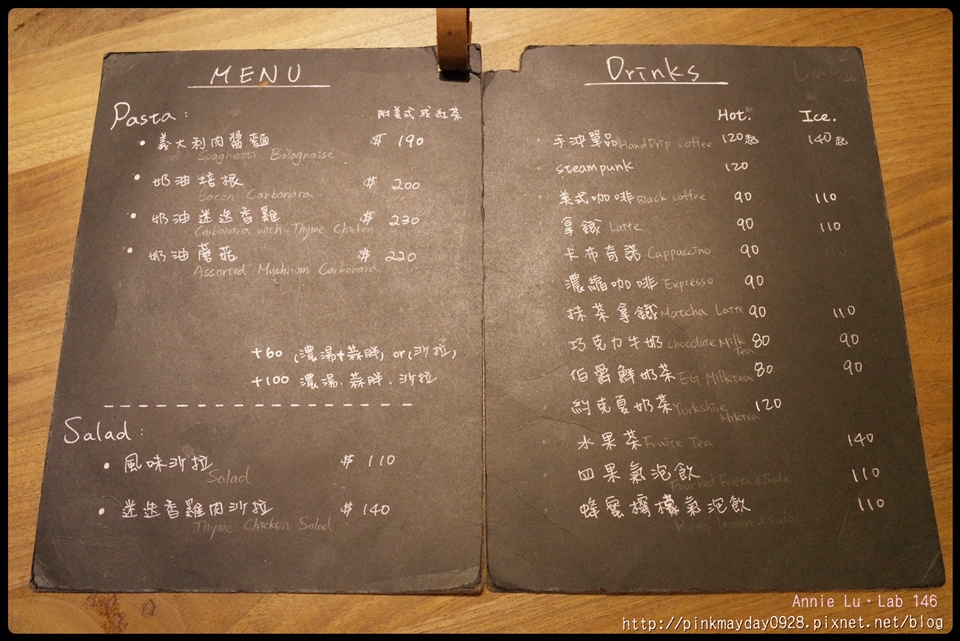 MENU
Pasta: 附美式或紅茶
• 義大利肉醬麵 $ 190
Spaghetti Bolognaise
• 奶油培根 $ 200
Bacon Carbonara
• 奶油迷迭香雞 $ 230
Carbonara with Thyme Chicken
• 奶油蘑菇 $ 220
Assorted Mushroom Carbonara
+60 (濃湯+蒜胖) or (沙拉)
+100 濃湯.蒜胖.沙拉
Salad:
• 風味沙拉 $ 110
Salad
• 迷迭香雞肉沙拉 $ 140
Thyme Chicken Salad
Drinks
Hot. Ice.
手沖單品 Hand Drip Coffee 120起 140起
steampunk 120
美式咖啡 Black coffee 90 110
拿鐵 Latte 90 110
卡布奇諾 Cappuccino 90
濃縮咖啡 Expresso 90
抹茶拿鐵 Matcha Latte 90 110
巧克力牛奶 chocolate Milk 80 90
Tea
伯爵鮮奶茶 EG Milktea 80 90
約克夏奶茶 Yorkshire 120
Milktea
水果茶 Fruite Tea 140
四果氣泡飲 110
蜂蜜檸檬氣泡飲 110
Annie Lu・Lab 146
http://pinkmayday0928.pixnet.net/blog